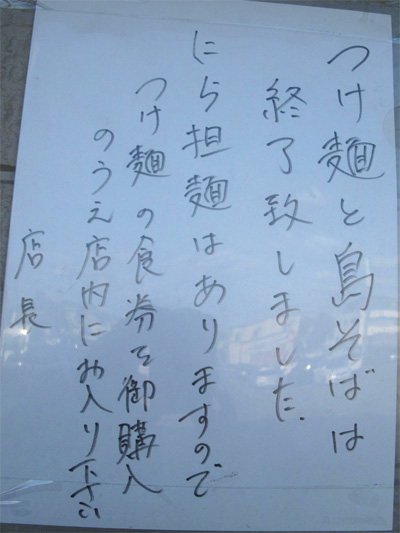 つけ麺と島そばは
終了致しました.
にら担麺はありますので
つけ麺の食券を御購入
のうえ店内にお入り下さい
店長